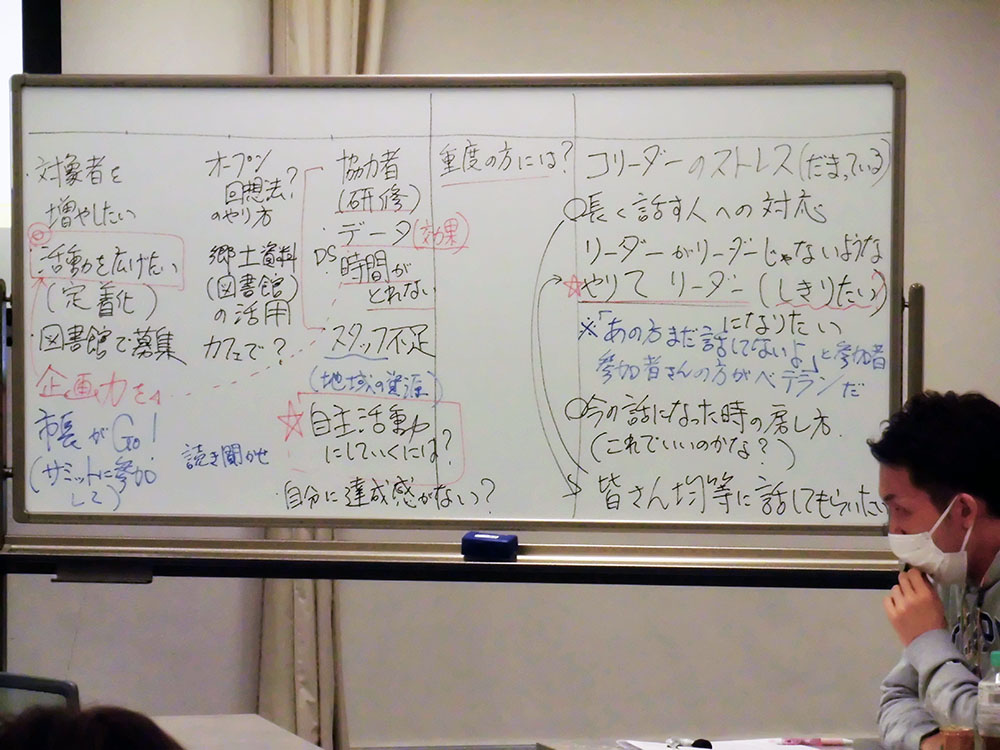 ・対象者を
増やしたい
活動を広げたい
(定着化)
・図書館で募集
企画力を
市長がGo!
(サミットに参加
して)
オープン
回想法?
のやり方
郷土資料
(図書館)
の活用
カフェで?
読き聞かせ
協力者
(研修)
・データ(効果)
DS
時間が
とれない
・スタッフ不足
(地域の資源)
☆自主活動
にしていくには?
・自分に達成感がない?
重度の方には?
コリーダーのストレス(だまっている)
○長く話す人への対応
リーダーがリーダーじゃないような
☆やりて リーダー(しきりたい)
になりたい
※「あの方まだ話してないよ」と参加者
参加者さんの方がベテランだ
○今の話になった時の戻し方.
(これでいいのかな?)
皆さん均等に話してもらいたい